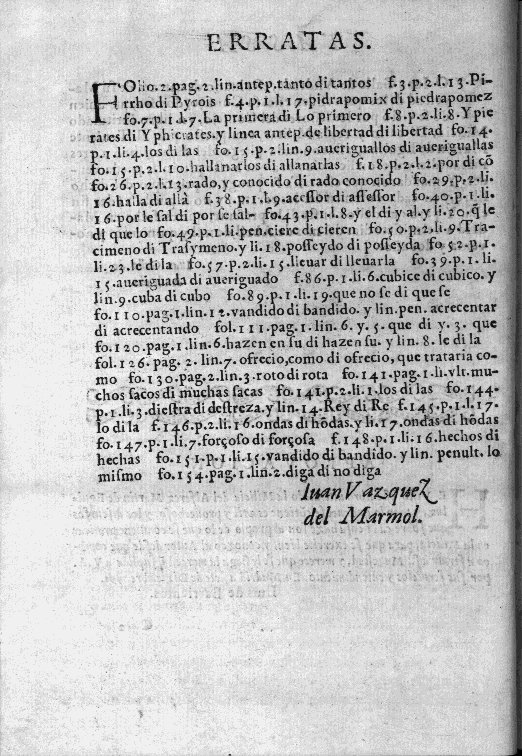 ERRATAS.
FOlio.2.pag.2.lin.antep.tanto di tantos f.3.p.2.l.13.Pi-
rrho di Pyrois f.4.p.1.l.17.pidrapomix di piedrapomez
fo.7.p.1.l.7.La primera di Lo primero f.8.p.2.li.8.Y pie
rates.di Yphicrates.y linea antep.de libertad di libertad fo.14.
p.1.li.4.los di las fo.15.p.2.lin.9.aueriguallos di aueriguallas
fo.15.p.2.l.10.hallanarlos di allanarlas f.18.p.2.l.2.por di cõ
fo.26.p.2.l.13.rado,y conocido di rado conocido fo.29.p.2.li.
16.halla di allà f.38.p.1.l.9.acessor di assessor fo.40.p.1.li.
16.por le sal di por se sal- fo.43.p.1.l.8.y el di y al.y li.20.q̃ le
di que lo fo.49.p.1.li.pen.ciere di cieren fo.50.p.2.li.9.Tra-
cimeno di Trasymeno.y li.18.posseydo di posseyda fo 52.p.1.
li.23.le di la fo.57.p.2.li.15.lleuar di lleuarla fo.39.p.1.li.
15.aueriguada di aueriguado f.86.p.1.li.6.cubice di cubico.y
lin.9.cuba di cubo fo.89.p.1.li.19.que no se di que se
fo.110.pag.1.lin.12.vandido di bandido.y lin.pen. acrecentar
di acrecentando fol.111.pag.1.lin.6.y.5.que di y.3.que
fo.120.pag.1.lin.6.hazen en su di hazen su.y lin.8.le di la
fol.126.pag.2.lin.7.ofrecio,como di ofrecio,que trataria co-
mo fo.130.pag.2.lin.3.roto di rota fo.141.pag.1.li.vlt.mu-
chos sacos di muchas sacas fo.141.p.2.li.1.los di las fo.144.
p.1.li.3.diestra di destreza.y lin.14.Rey di Re f.145.p.1.l.17.
lo di la f.146.p.2.li.16.ondas di hõdas.y li.17.ondas di hõdas
fo.147.p.1.li.7.forçoso di forçosa f.148.p.1.li.16.hechos di
hechas fo.151.p.1.li.15.vandido di bandido.y lin.penult.lo
mismo fo.154.pag.1.lin.2.diga di no diga
Iuan Vazquez
del Marmol.